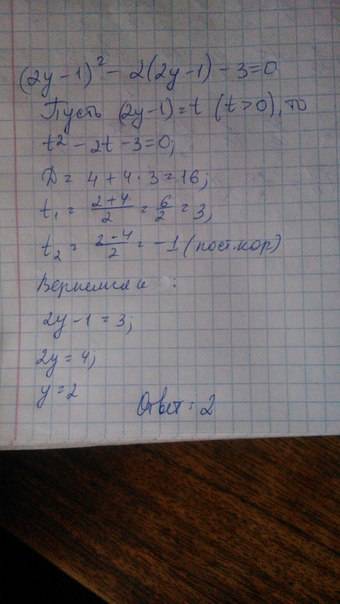 (2y-1)² - 2(2y-1) - 3 = 0
Пусть (2y-1) = t (t > 0), то
t² - 2t - 3 = 0;
D = 4 + 4 · 3 = 16;
t₁ = (2+4)/2 = 6/2 = 3,
t₂ = (2-4)/2 = -1 (пост. кор)
Вернемся к :
2y - 1 = 3;
2y = 4;
y = 2
Ответ: 2